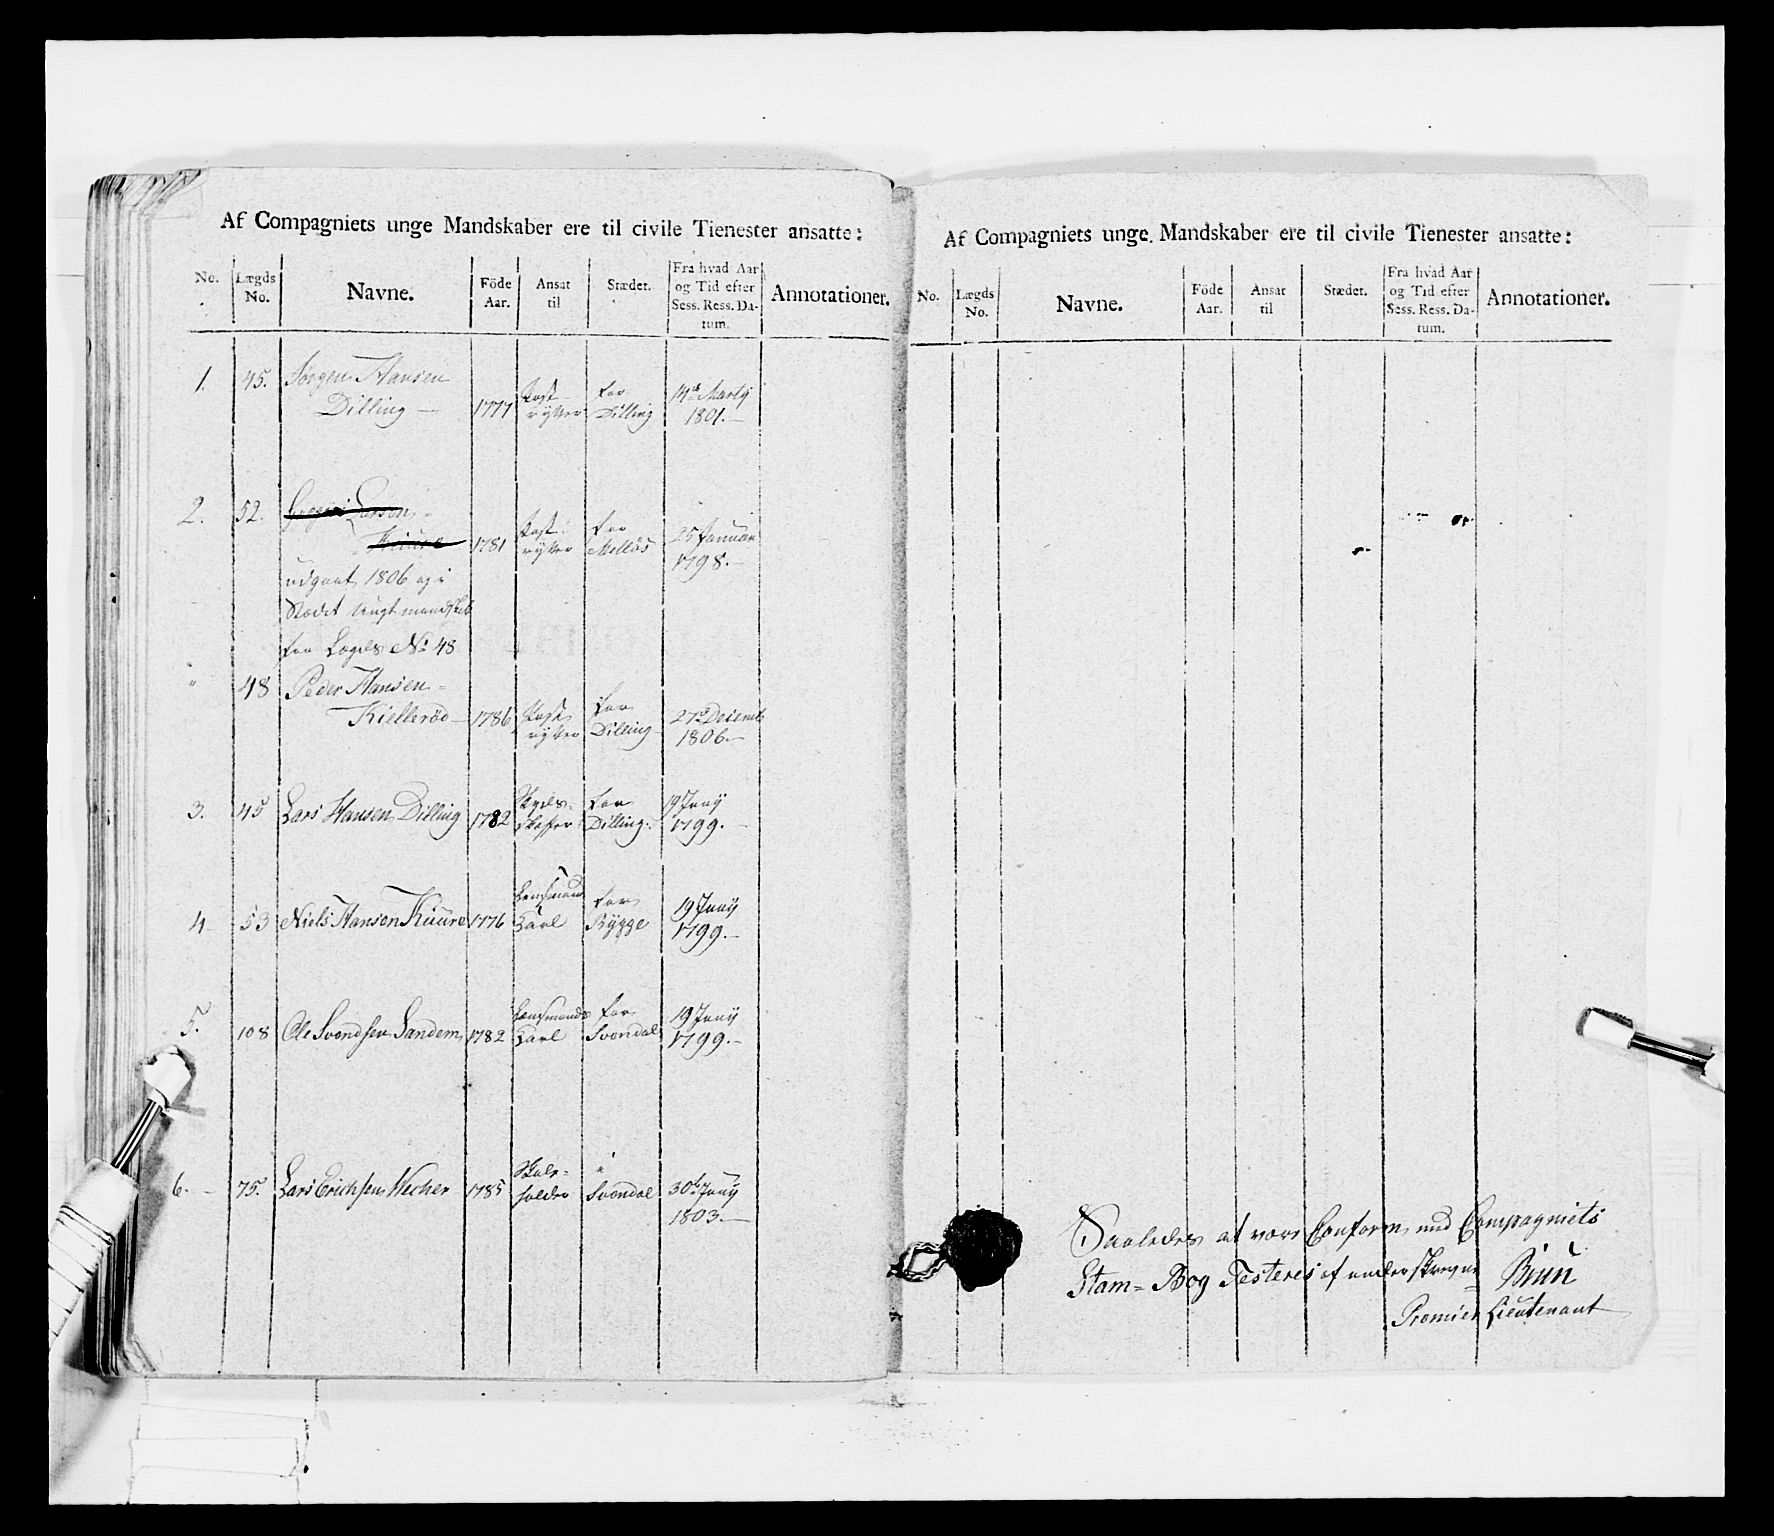 Af Compagniets unge Mandskaber ere til civile Tienester ansatte:
No. Lægds No. Navne. Föde Aar. Ansat til Stædet. Fra hvad Aar og Tid efter Sess. Ress. Datum. Annotationer.
1. 45. Jørgen Hansen
Dilling — 1777 Post rytter for Dilling 14de Marty 1801.—
2. 52. Larsen
Kuure 1781 Post rytter for Mellös 25 Januar 1798.—
udgaat 1806 og i
Stædet brugt mandskab
fra Lægds No 48
" 48 Peder Hansen
Kielleröd — 1786 Post rytter for Dilling 27de Decemb 1806.—
3. 45 Lars Hansen Dilling 1782 Skyds skaffer for Dilling. 19 Juny 1799.—
4 53 Niels Hansen Kuure 1776 Lensmands Karl for Rygge 19 Juny 1799.—
5. 108 Ole Svendsen Sandem 1782 Lensmands Karl for Svendal 19 Juny 1799.—
6. 75. Lars Erichsen Wecher 1785 Skole holder i Svendal 30te Juny 1803.—
Af Compagniets unge Mandskaber ere til civile Tienester ansatte:
No. Lægds No. Navne. Föde Aar. Ansat til Stædet. Fra hvad Aar og Tid efter Sess. Ress. Datum. Annotationer.
Saaledes at være Conform med Compagniets
Stam=Bog Testeres af underskrevne Bruun
Premier Lieutenant